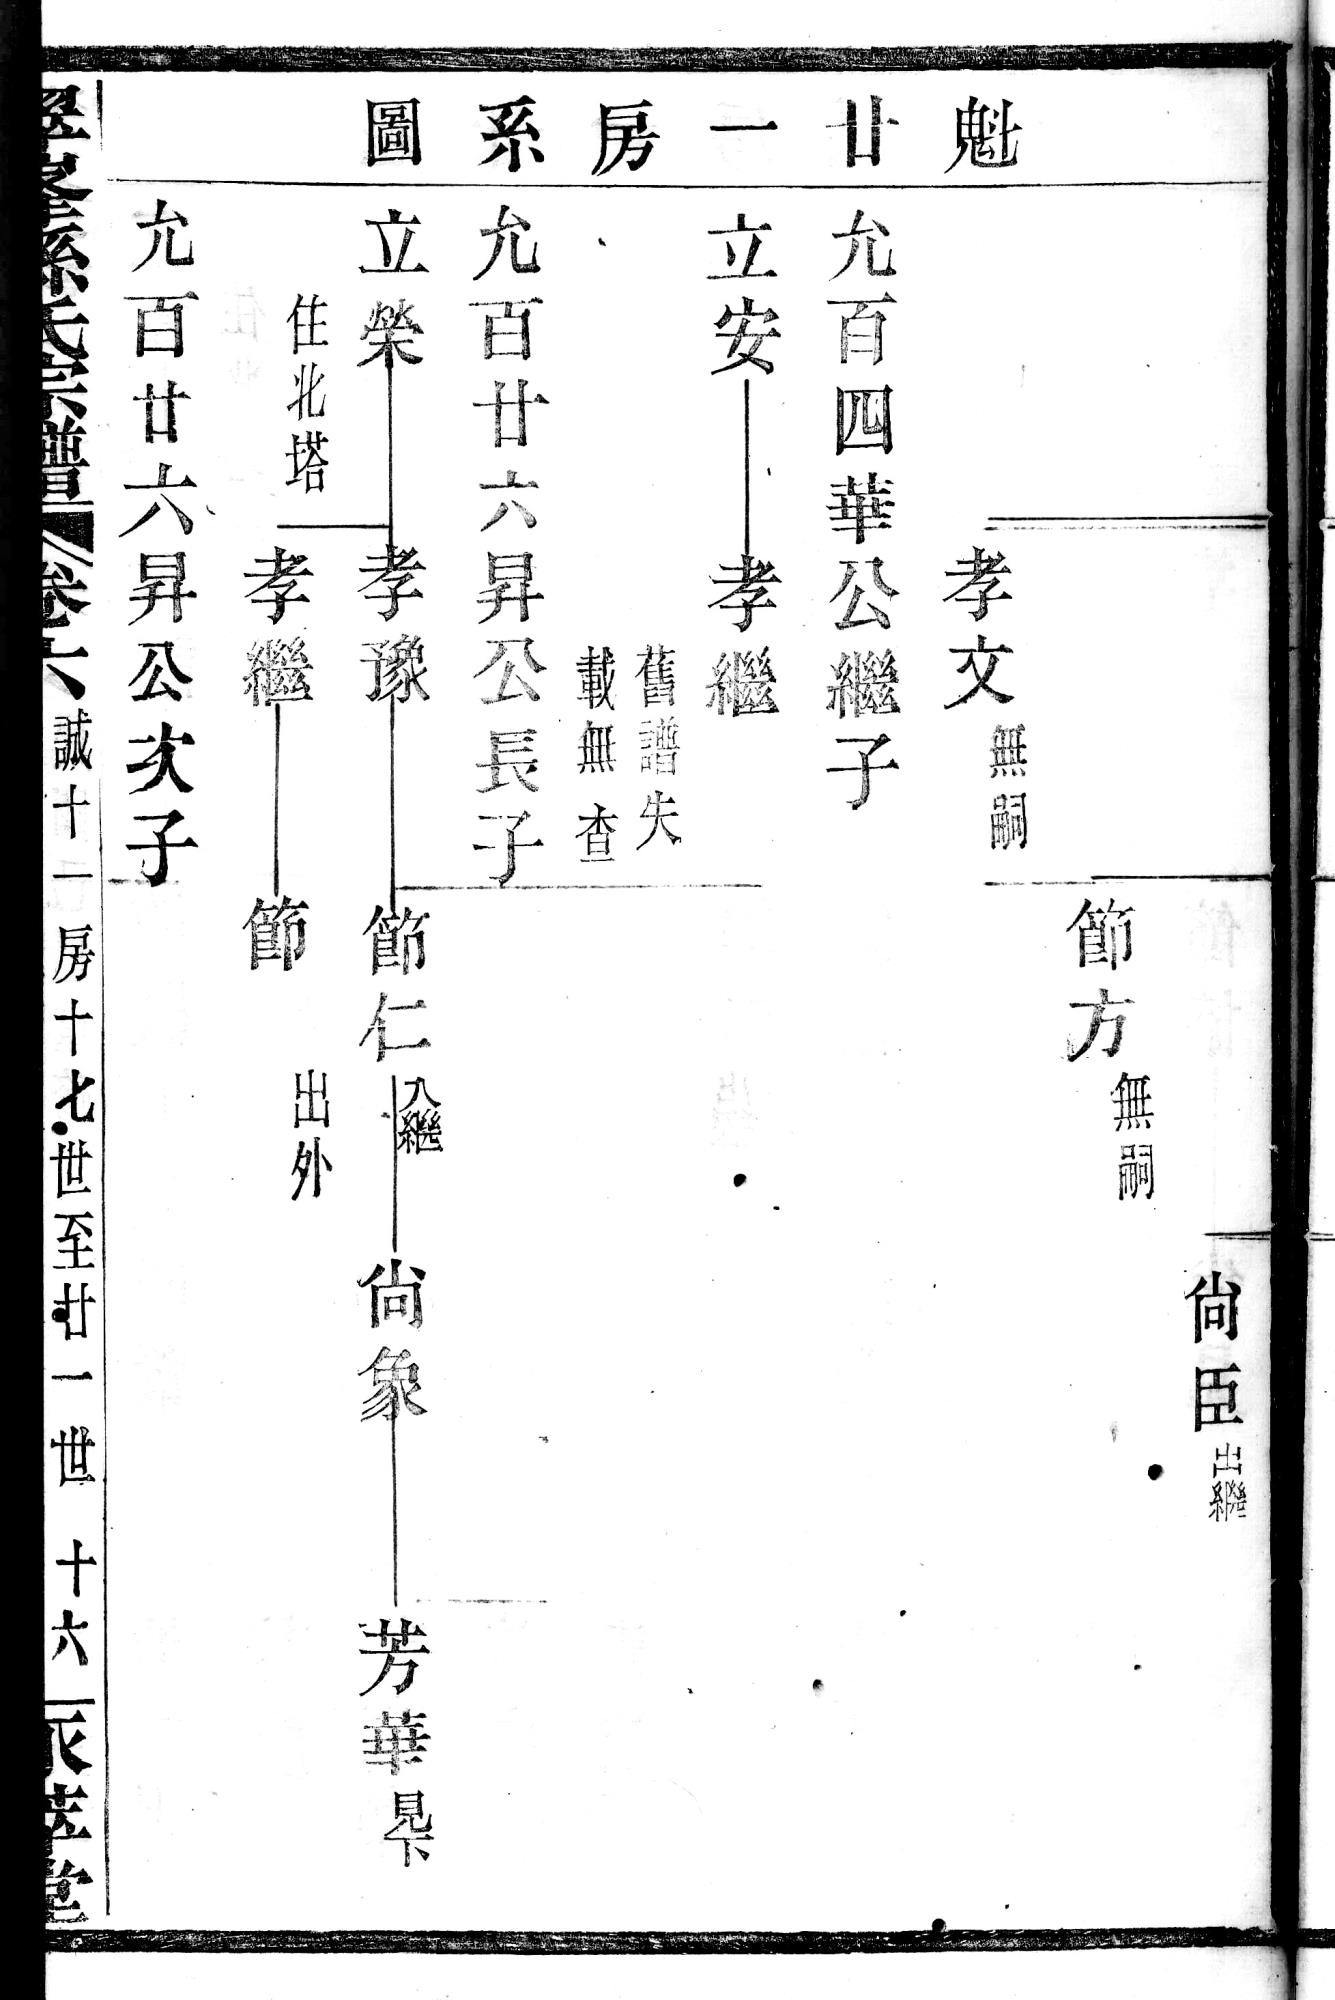 魁廿一房系圖
尙臣
出繼
節方
無嗣
孝文
無嗣
允百四華公繼子
立安
孝繼
舊譜失
載無查
允百廿六昇公長子
立榮
孝豫
節仁
入繼
尙象
芳華
見下
住北塔
孝繼
節
出外
允百廿六昇公次子
孫氏宗譜
卷六
誠十二房十七世至廿一世
十六
堂